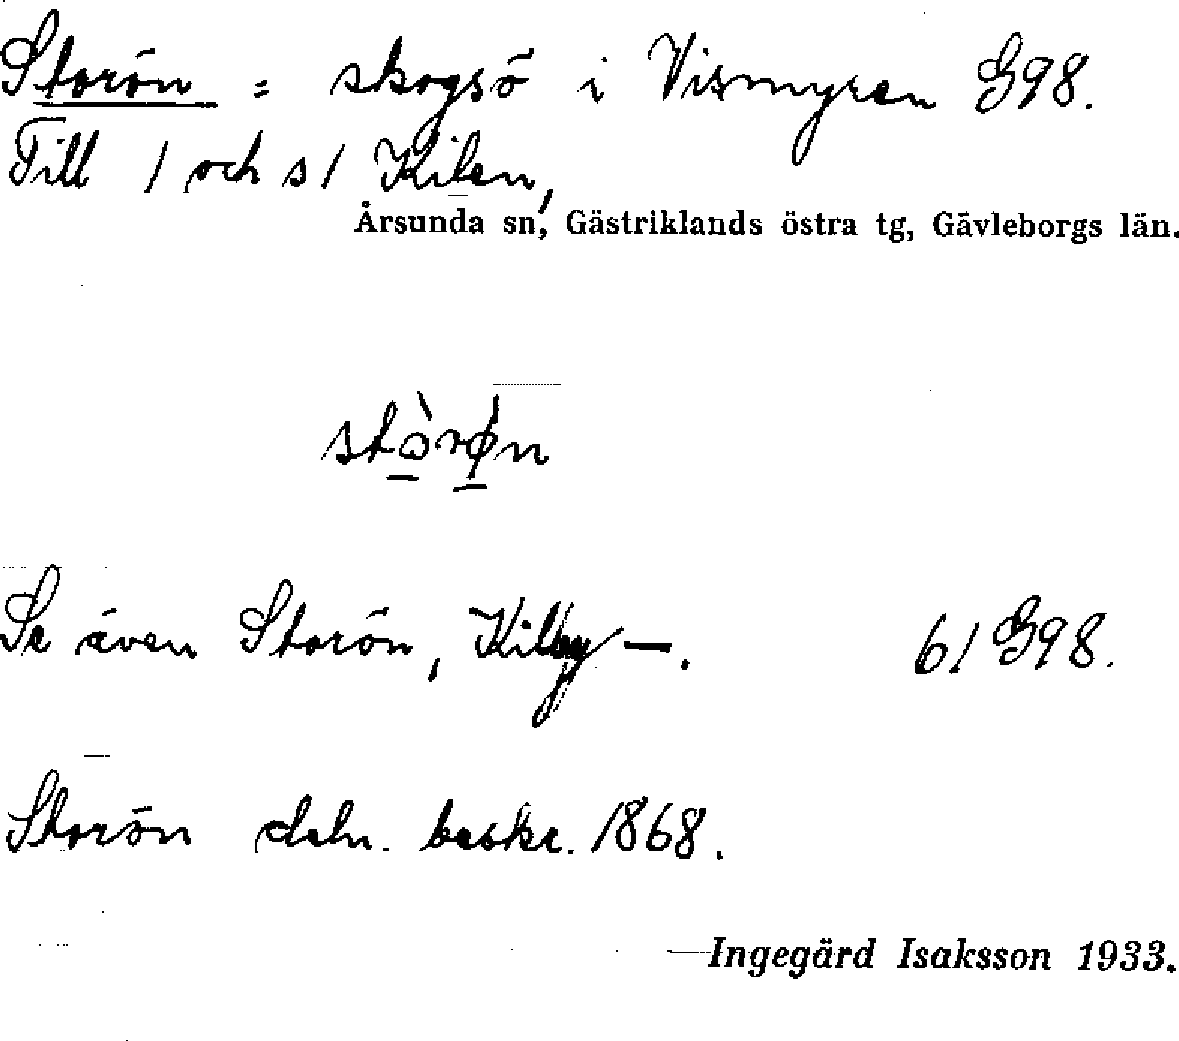 Storön = skogsö i Vismyren G98.
Till 1 och s1 Kilen,
Årsunda sn, Gästriklands östra tg, Gävleborgs län.
stòrǿn
Se även Storön, Kilby —. 61 G98.
Storön deln. beskr. 1868.
Ingegärd Isaksson 1933.